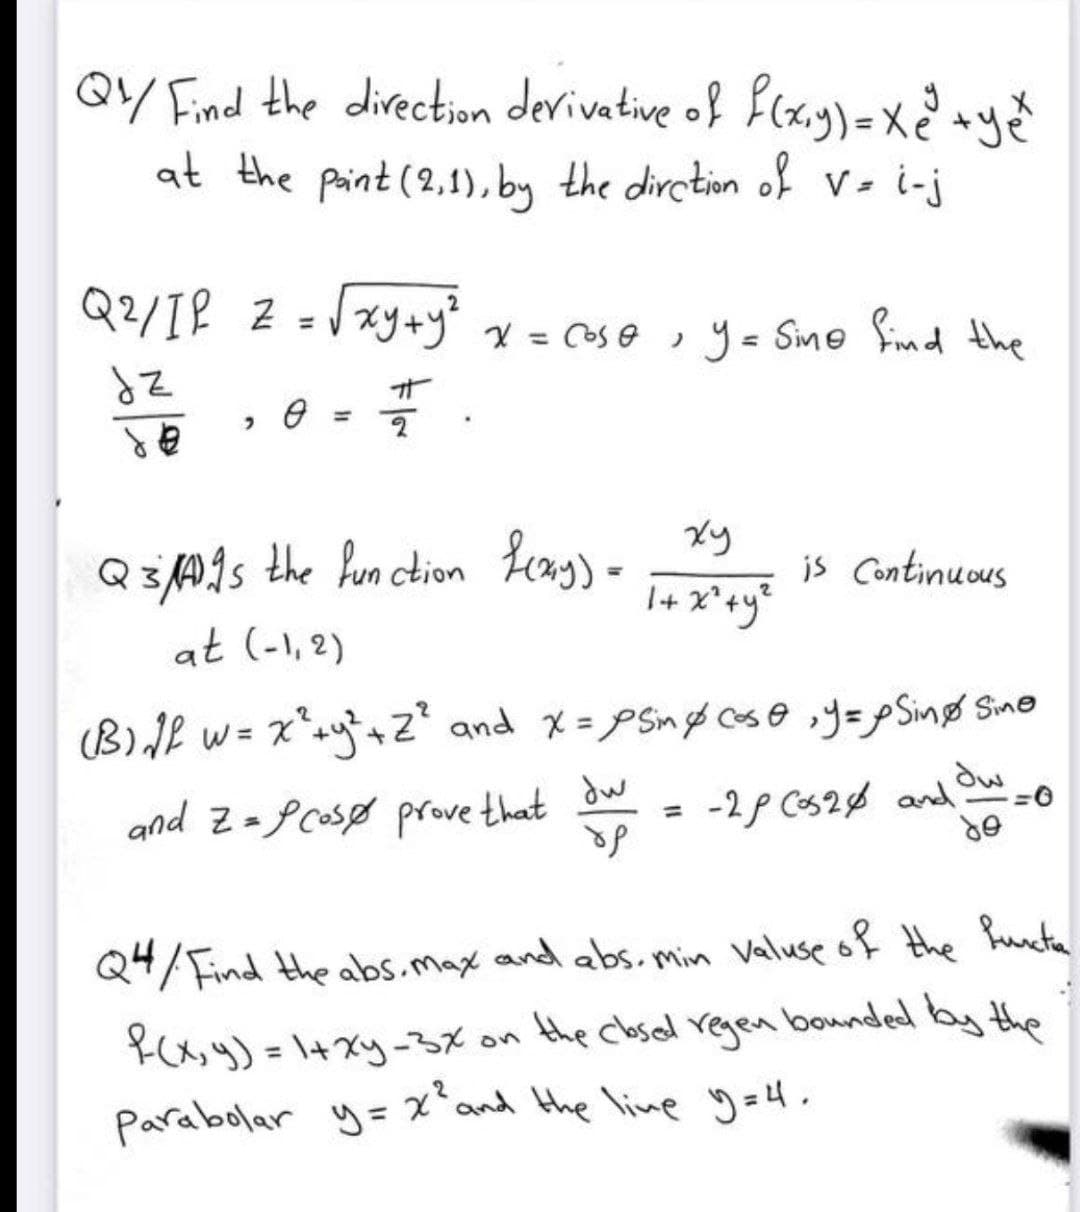 Q1/ Find the direction derivative of f(x,y)=xe^y+ye^x
at the point (2,1), by the dirction of v= i-j
Q2/If z = √xy+y² x = cosθ , y = Sinθ find the
∂z/∂θ , θ = π/2 .
Q3/(A) Is the function f(x,y) = xy/1+x²+y² is Continuous
at (-1,2)
(B) If w = x²+y²+z² and x = ρSinφ cosθ , y=ρSinφ Sinθ
and z=ρcosφ prove that ∂w/∂ρ = -2ρ Cos2φ and ∂w/∂θ =0
Q4/ Find the abs.max and abs.min Valuse of the function
f(x,y) = 1+xy-3x on the closed regen bounded by the
Parabolar y = x² and the line y=4.